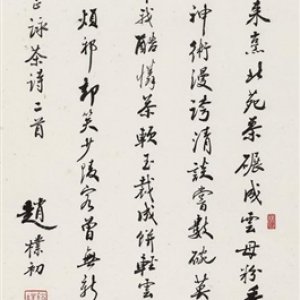 来烹北苑茶碾成雲母粉
神術漫誇清談嘗數碗莫
我酷憐茶軟玉裁成餅輕雲
煩却笑少陵客曾無新
正詠茶詩二首
趙樸初